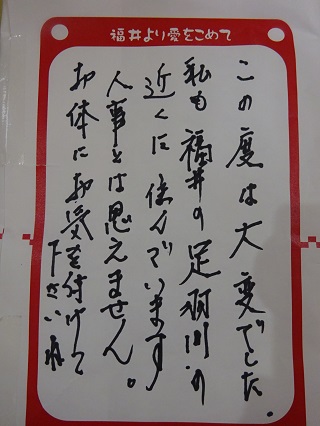 福井より愛をこめて
この度は大変でした。
私も福井の足羽川の
近くに住んでいます
人事とは思えません。
お体にお気を付けて
下さいね